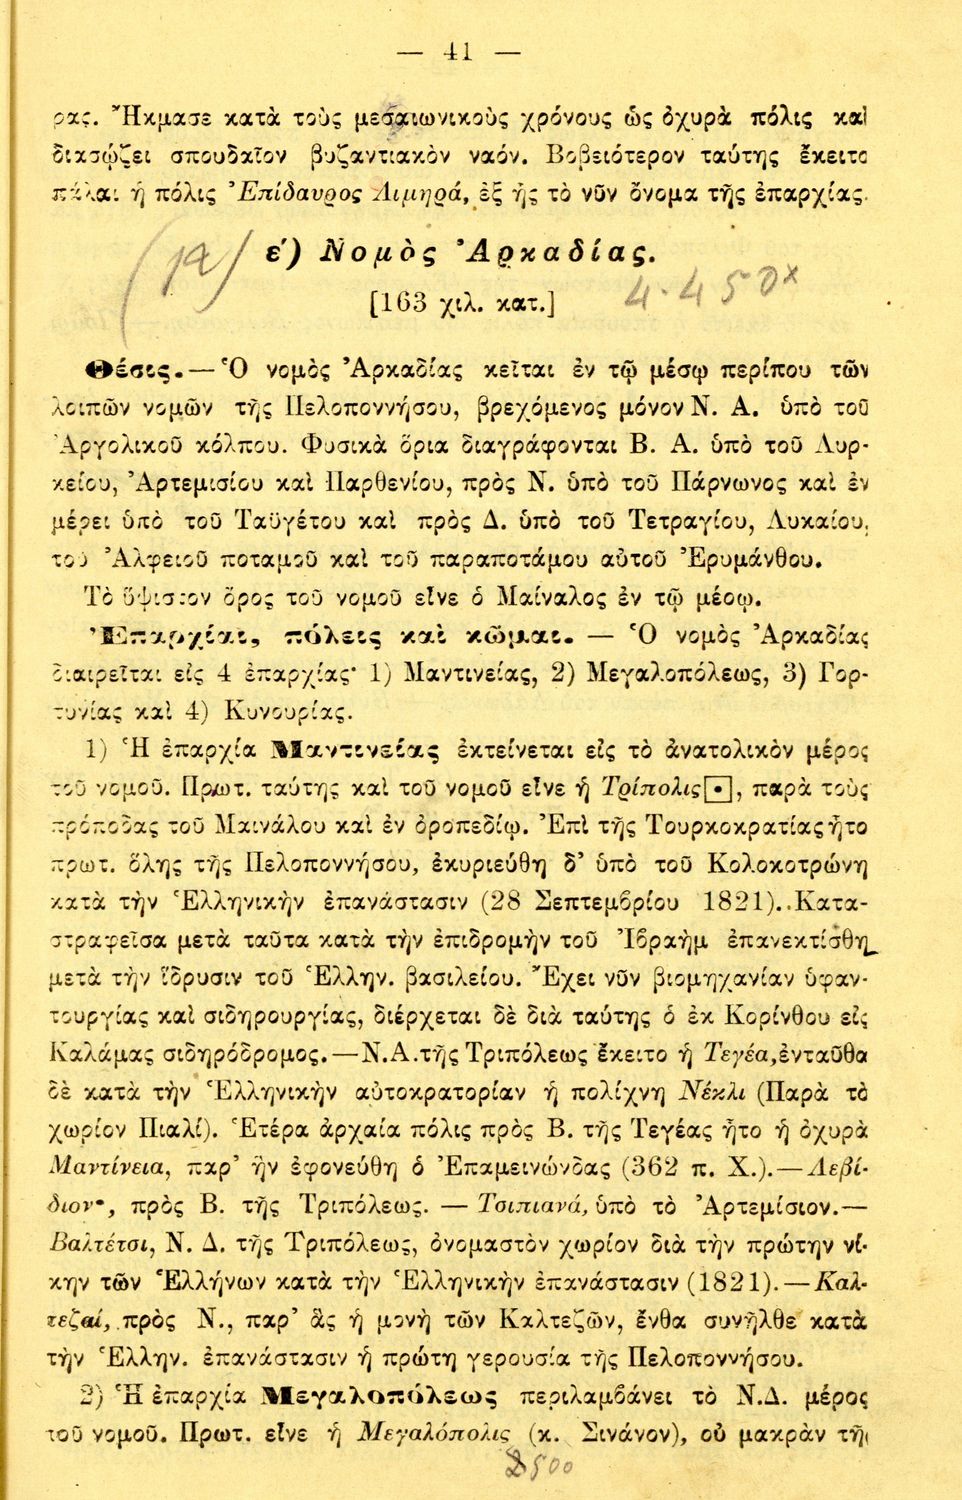 — 41 —
ρας. Ἤκμασε κατὰ τοὺς μεσαιωνικοὺς χρόνους ὡς ὀχυρὰ πόλις καὶ
διασῴζει σπουδαῖον βυζαντιακὸν ναόν. Βοβειότερον ταύτης ἔκειτο
πάλαι ἡ πόλις Ἐπίδαυρος Λιμηρά, ἐξ ἧς τὸ νῦν ὄνομα τῆς ἐπαρχίας.
ε΄) Νομὸς Ἀρκαδίας.
4.450
[163 χιλ. κατ.]
Θέσις.—Ὁ νομὸς Ἀρκαδίας κεῖται ἐν τῷ μέσῳ περίπου τῶν
λοιπῶν νομῶν τῆς Πελοποννήσου, βρεχόμενος μόνον Ν. Α. ὑπὸ τοῦ
Ἀργολικοῦ κόλπου. Φυσικὰ ὅρια διαγράφονται Β. Α. ὑπὸ τοῦ Λυρ-
κείου, Ἀρτεμισίου καὶ Παρθενίου, πρὸς Ν. ὑπὸ τοῦ Πάρνωνος καὶ ἐν
μέρει ὑπὸ τοῦ Ταϋγέτου καὶ πρὸς Δ. ὑπὸ τοῦ Τετραγίου, Λυκαίου,
τοῦ Ἀλφειοῦ ποταμοῦ καὶ τοῦ παραποτάμου αὐτοῦ Ἐρυμάνθου.
Τὸ ὕψιστον ὄρος τοῦ νομοῦ εἶνε ὁ Μαίναλος ἐν τῷ μέσῳ.
Ἐπαρχίαι, πόλεις καὶ κῶμαι. — Ὁ νομὸς Ἀρκαδίας
διαιρεῖται εἰς 4 ἐπαρχίας· 1) Μαντινείας, 2) Μεγαλοπόλεως, 3) Γορ-
τυνίας καὶ 4) Κυνουρίας.
1) Ἡ ἐπαρχία Μαντινείας ἐκτείνεται εἰς τὸ ἀνατολικὸν μέρος
τοῦ νομοῦ. Πρωτ. ταύτης καὶ τοῦ νομοῦ εἶνε ἡ Τρίπολις⊡, παρὰ τοὺς
πρόποδας τοῦ Μαινάλου καὶ ἐν ὀροπεδίῳ. Ἐπὶ τῆς Τουρκοκρατίας ἦτο
πρωτ. ὅλης τῆς Πελοποννήσου, ἐκυριεύθη δ' ὑπὸ τοῦ Κολοκοτρώνη
κατὰ τὴν Ἑλληνικὴν ἐπανάστασιν (28 Σεπτεμβρίου 1821). Κατα-
στραφεῖσα μετὰ ταῦτα κατὰ τὴν ἐπιδρομὴν τοῦ Ἰβραὴμ ἐπανεκτίσθη
μετὰ τὴν ἵδρυσιν τοῦ Ἑλλην. βασιλείου. Ἔχει νῦν βιομηχανίαν ὑφαν-
τουργίας καὶ σιδηρουργίας, διέρχεται δὲ διὰ ταύτης ὁ ἐκ Κορίνθου εἰς
Καλάμας σιδηρόδρομος.—Ν.Α.τῆς Τριπόλεως ἔκειτο ἡ Τεγέα, ἐνταῦθα
δὲ κατὰ τὴν Ἑλληνικὴν αὐτοκρατορίαν ἡ πολίχνη Νέκλι (Παρὰ τὸ
χωρίον Πιαλί). Ἑτέρα ἀρχαία πόλις πρὸς Β. τῆς Τεγέας ἦτο ἡ ὀχυρὰ
Μαντίνεια, παρ' ἣν ἐφονεύθη ὁ Ἐπαμεινώνδας (362 π. Χ.).—Λεβί-
διον•, πρὸς Β. τῆς Τριπόλεως. — Τσιπιανά, ὑπὸ τὸ Ἀρτεμίσιον.—
Βαλτέτσι, Ν. Δ. τῆς Τριπόλεως, ὀνομαστὸν χωρίον διὰ τὴν πρώτην νί-
κην τῶν Ἑλλήνων κατὰ τὴν Ἑλληνικὴν ἐπανάστασιν (1821).—Καλ-
τεζαί, πρὸς Ν., παρ' ἃς ἡ μονὴ τῶν Καλτεζῶν, ἔνθα συνῆλθε κατὰ
τὴν Ἑλλην. ἐπανάστασιν ἡ πρώτη γερουσία τῆς Πελοποννήσου.
2) Ἡ ἐπαρχία Μεγαλοπόλεως περιλαμβάνει τὸ Ν.Δ. μέρος
τοῦ νομοῦ. Πρωτ. εἶνε ἡ Μεγαλόπολις (κ. Σινάνον), οὐ μακρὰν τῆς
2500